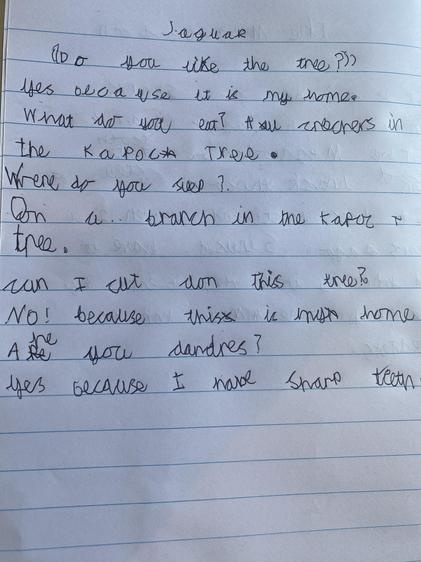 Jaguar
((Do you like the tree?))
yes because it is my home.
What do you eat? All creachers in
the Kapock Tree.
Where do you sleep?
On a.. branch in the Kapoc
tree.
can I cut don this tree?
NO! because this is my home
Are you dandres?
yes because I have sharp teeth